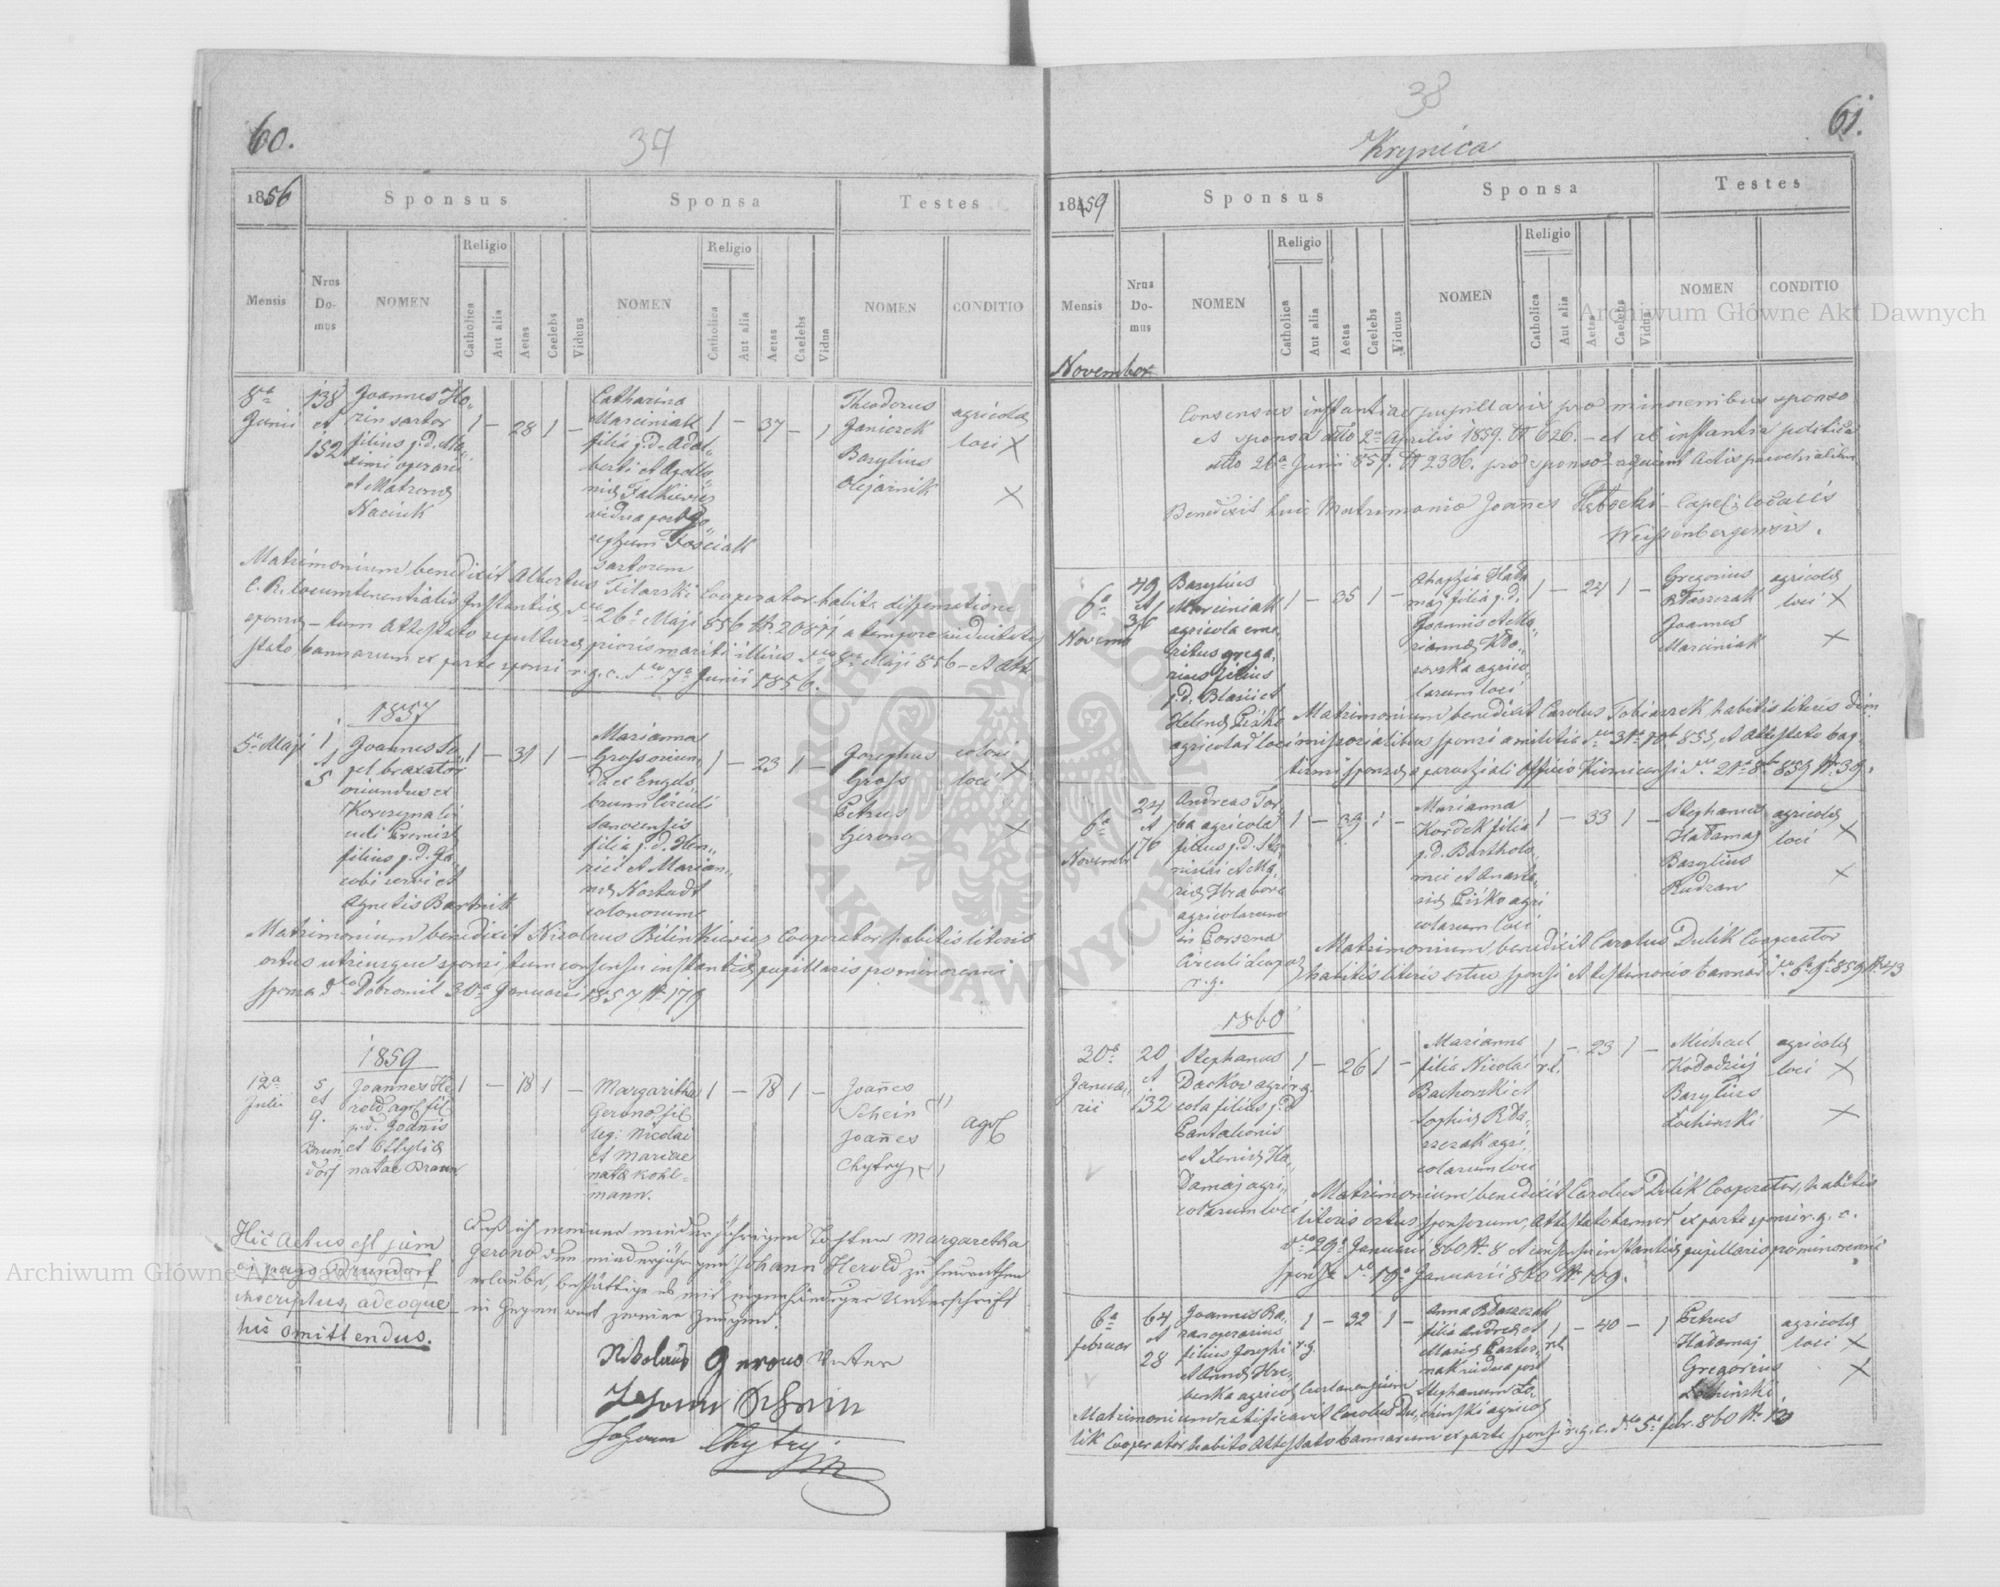 60.
37
1856
Sponsus
Sponsa
Testes
Mensis
Nrus Domus
NOMEN
Religio
Catholica
Aut alia
Aetas
Caelebs
Viduus
NOMEN
Religio
Catholica
Aut alia
Aetas
Caelebs
Vidua
NOMEN
CONDITIO
8va Junii
138 et 152
Joannes Ho„
rin sartor
filius p.d. Ma„
ximi operarii
et Matronæ
Naciuk
1 – 28 1 –
Catharina
Marciniak
filia p.d. Adal„
berti et Apollo„
niæ Fatkiewicz
vidua post Gr
Fościak
sartorem
1 – 37 – 1
Theodorus
Janiczek
Basylius
Olejarnik
agricolæ
loci X
X
Matrimonium benedixit Albertus Filarski Cooperator habita dispensatione
C. R. locumtenentialis Instantiæ dto 26a Maji 856 N. 20811 a tempore viduitatis
sponsæ – tum Attestato sepulturæ prioris mariti illius dto 8a Maji 856 – et Atte
stato bannorum ex parte sponsi r.g.c. dto 7a Junii 1856.
1857
5a Maji
1 et 5
Joannes So„
pel braxator
oriundus ex
filius p.d. Ja„
cobi servi et
Agnetis Bartnik
1 – 31 1 –
Marianna
Gross oriun„
da ex Engels„
brunn Circuli
Sanocensis
filia p.d. Hen„
rici et Marian„
næ Kostadt
colonorum
1 – 23 1 –
Josephus
Gross
Petrus
Gerono
coloni
loci X
X
Matrimonium benedixit Nicolaus Bilinkiewicz Cooperator habitis literis
ortus utriusque sponsi, tum consensu instantiæ pupillaris pro minorenni
sponsa dto Dobromil 30a Januarii 1857 N. 179
1859
12a Julii
5 et 9. Brundorf
Joannes He
rold agr. fil
p.d. Joanis
et Ottyliæ
natae Braun
1 – 18 1 –
Margaritha
Gerono fil
leg: Nicolai
et Mariae
nata Kohl=
mann.
1 – 18 1 –
Joañes
Schein
Joañes
Chytry
agr
Hic Actus est jam
ai pago Brundorf
inscriptus, adeoque
hic omittendus.
Daß ich meiner minderjährigen Tochter Margaretha
Gerono den minderjährigen Johann Herold zu heurathen
erlaube, bestättige es mit eigenhändiger Unterschrift
in Gegenwart zweier Zeugen.
Nikolaus Gerono Vater
Johann Schein
Johann Chytry
38
61.
Krynica
1859
Sponsus
Sponsa
Testes
Mensis
Nrus Domus
NOMEN
Religio
Catholica
Aut alia
Aetas
Caelebs
Viduus
NOMEN
Religio
Catholica
Aut alia
Aetas
Caelebs
Vidua
NOMEN
CONDITIO
November
Consensus instantiae pupillaris pro minorenibus sponso
et sponsa dtto 2a Aprilis 1859. N 626. – et ab instantia politica
dtto 26a Junii 859. N 2336. pro sponso Actis parochialibus
Benedixit huic Matrimonio Joañes Capel: localis
Weissenbergensis.
6a Novemb
49 et 36
Basylius
Marciniak
agricola eme„
ritus grega„
rius filius
p.d. Blasii et
Helenæ Liśko
agricolar loci
1 – 35 1 –
Hada
maj filia p.d.
Joannis et Ma„
riannæ
agrico„
larum loci
1 – 24 1 –
Gregorius
Błaszczak
Joannes
Marciniak
agricolæ
loci X
X
Matrimonium benedixit Carolus Tobiaszek, habitis literis dim
missorialibus sponsi a militia dto 31a 10b 853, et Attestato bap„
tismi sponsæ a parochiali officio dto 21a 8b 859 N. 39.
6a Novemb
24 et 76
Andreas Tor
ba agricola
filius p.d. Sta
nislai et Ma„
riæ Hrabove
agricolarum
in
Circuli
r.g.
1 – 39 1 –
Marianna
Kordek filia
p.d. Bartholo„
mei et Anasta„
siæ Liśko agri
colarum loci
1 – 33 1 –
Stephanus
Hadamaj
Basylius
Rudzan
agricolæ
loci X
X
Matrimonium benedixit Carolus Dulik Cooperator
habitis literis ortus sponsi et testimonio bannor dto 6a 9b 859 N. 43
1860
30a Januarii
20 et 132
Stephanus
Dackow agri
cola filius p.d.
Pantalionis
et Xeniæ Ha„
damaj agri„
colarum loci
r.g.
1 – 26 1 –
Marianna
filia Nicolai
Bachowski et
Sophiæ Bła„
szczak agri„
colarum loci
1 – 23 1 –
r.l.
Michael
Kołodziej
Basylius
Łochinski
agricolæ
loci X
X
Matrimonium benedixit Carolus Dulik Cooperator, habitis
literis ortus sponsorum, Attestato bannor ex parte sponsi r.g.c.
dto 29a Januarii 860 N. 8 et consensu instantiæ pupillaris pro minorenni
sponsa dto 19a Januarii 860 N. 109.
6a februar
64 et 28
Joannes Ba„
ran operarius
filius Josephi
et Annæ Hre„
berka agricol
r.g.
1 – 32 1 –
Anna Błaszczak
filia Andreæ et
Mariæ Paster„
nak vidua post
Stephanum Ło„
chinski agricol
1 – 40 – 1
r.l.
Petrus
Hadamaj
Gregorius
Łochinski
agricolæ
loci X
X
Matrimonium ratificavit Carolus Du„
lik Cooperator, habito Attestato bannorum ex parte sponsi r.g.c. dto 5a febr. 860 N. 13
Archiwum Główne Akt Dawnych
Archiwum Główne Akt Dawnych
Archiwum Główne Akt Dawnych
ARCHIWUM GŁÓWNE AKT DAWNYCH